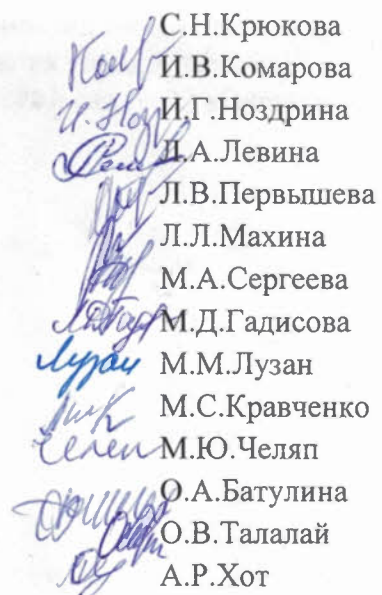 С.Н.Крюкова
И.В.Комарова
И.Г.Ноздрина
Л.А.Левина
Л.В.Первышева
Л.Л.Махина
М.А.Сергеева
М.Д.Гадисова
Лузан М.М.Лузан
М.С.Кравченко
М.Ю.Челяп
О.А.Батулина
О.В.Талалай
А.Р.Хот